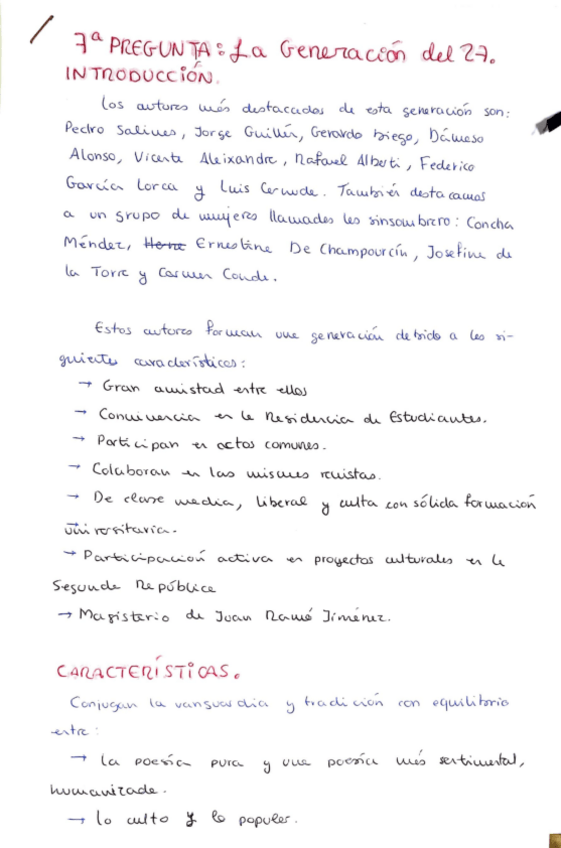 7ª PREGUNTA: La Generación del 27.
INTRODUCCIÓN.
Los autores más destacados de esta generación son:
Pedro Salinas, Jorge Guillén, Gerardo Diego, Dámaso
Alonso, Vicente Aleixandre, Rafael Alberti, Federico
García Lorca y Luis Cernuda. También destacamos
a un grupo de mujeres llamadas las sinsombrero: Concha
Méndez, Ernestina De Champourcín, Josefina de
la Torre y Carmen Conde.
Estos autores forman una generación debido a las si-
guientes características:
→ Gran amistad entre ellos
→ Convivencia en la Residencia de Estudiantes.
→ Participan en actos comunes.
→ Colaboran en las mismas revistas.
→ De clase media, liberal y culta con sólida formación
universitaria.
→ Participación activa en proyectos culturales en la
Segunda República
→ Magisterio de Juan Ramó Jiménez.
CARACTERÍSTICAS.
Conjugan la vanguardia y tradición con equilibrio
entre:
→ la poesía pura y una poesía más sentimental,
humanizada.
→ lo culto y lo popular.